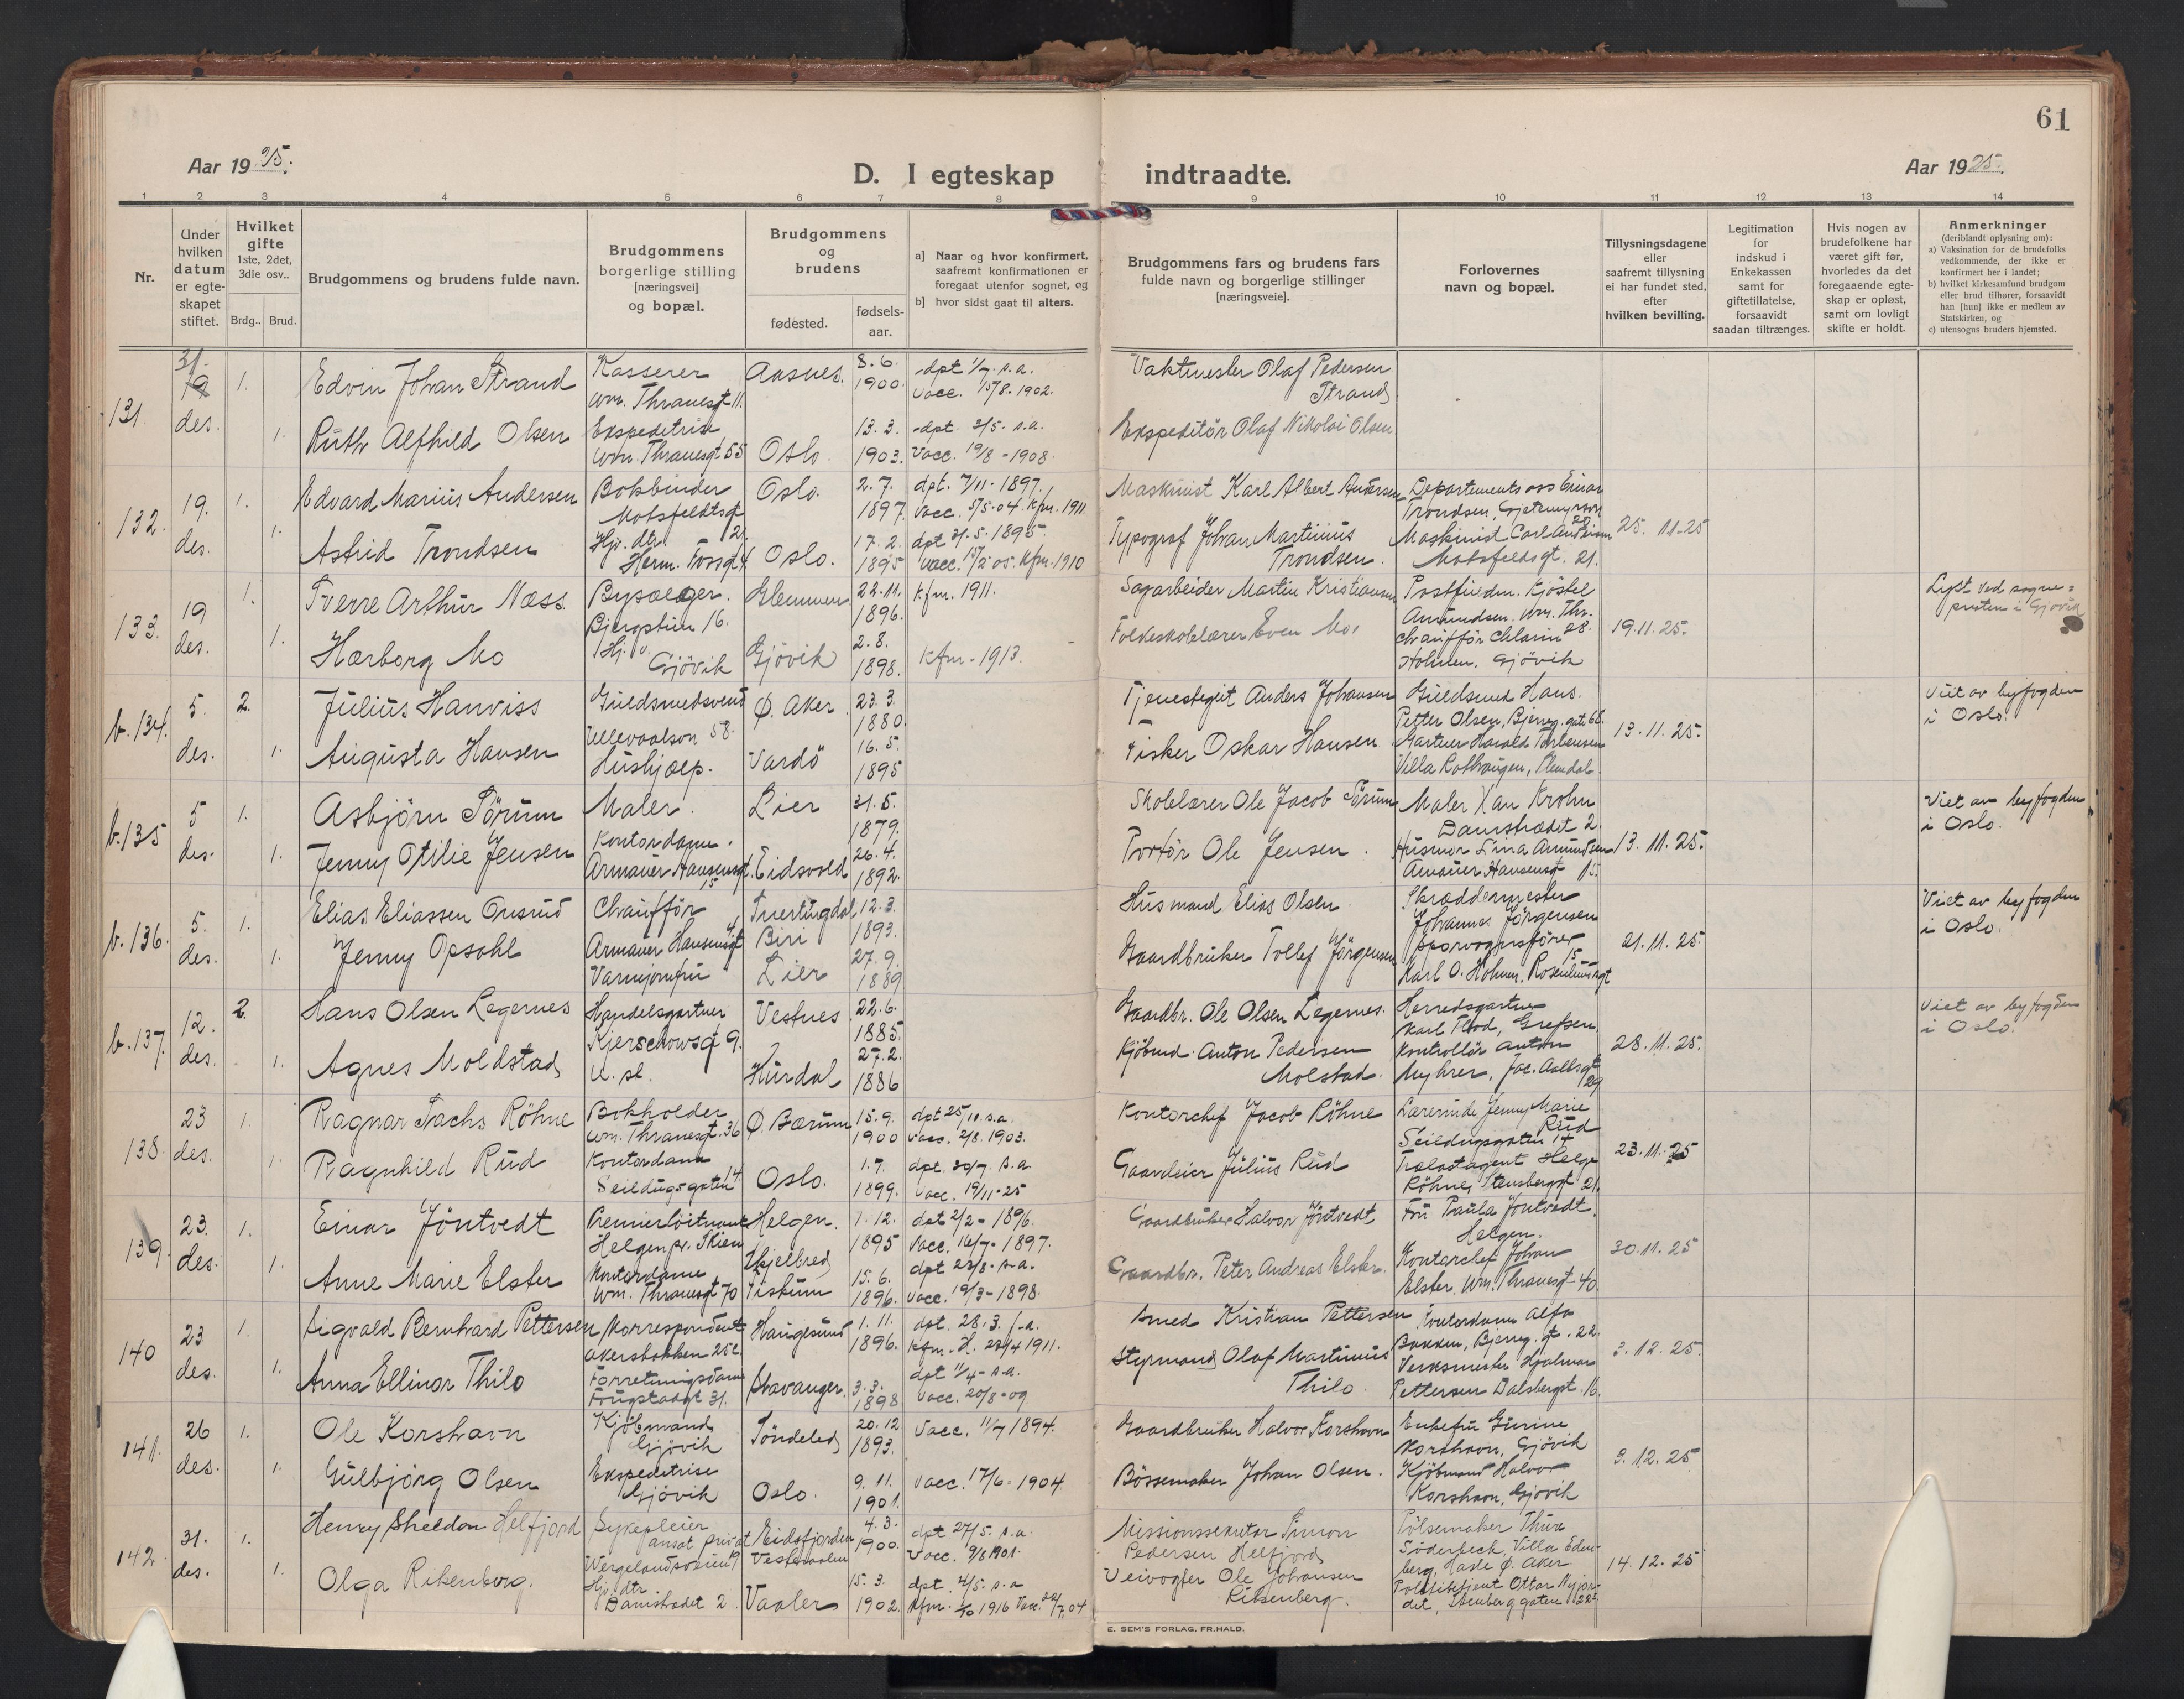 61
Aar 1925.
D. I egteskap indtraadte.
Aar 1925.
1 2 3 4 5 6 7 8 9 10 11 12 13 14
Nr.
Under hvilken datum er egte-skapet stiftet.
Hvilket gifte 1ste, 2det, 3die osv..
Brdg.. Brud.
Brudgommens og brudens fulde navn.
Brudgommens borgerlige stilling [næringsvei] og bopæl.
Brudgommens og brudens
fødested.
fødsels-aar.
a) Naar og hvor konfirmert, saafremt konfirmationen er foregaat utenfor sognet, og
b) hvor sidst gaat til alters.
Brudgommens fars og brudens fars fulde navn og borgerlige stillinger [næringsveie].
Forlovernes navn og bopæl.
Tillysningsdagene eller saafremt tillysning ei har fundet sted, efter hvilken bevilling.
Legitimation for indskud i Enkekassen samt for giftetillatelse, forsaavidt saadan tiltrænges.
Hvis nogen av brudefolkene har været gift før, hvorledes da det foregaaende egte-skap er opløst, samt om lovligt skifte er holdt.
Anmerkninger
(deriblandt oplysning om):
a) Vaksination for de brudefolks vedkommende, der ikke er konfirmert her i landet;
b) hvilket kirkesamfund brudgom eller brud tilhører, forsaavidt han [hun] ikke er medlem av Statskirken, og
c) utensogns bruders hjemsted.
131. 31 des. 1. Edvin Johan Strand Kasserer Wm. Thranesgt 11. Aasnes. 8.6. 1900. dpt 1/7 s.a. Vacc. 15/8-1902. Vaktmester Olaf Pedersen Strand
1. Ruth Alfhild Olsen Ekspeditrise Wm. Thranesgt 55 Oslo. 13.3. 1903. dpt. 3/5. s.a. Vacc. 19/8-1908. Ekspeditör Olaf Nikolai Olsen
132. 19. des. 1. Edvard Marius Andersen Bokbinder Motzfeldtsgt 21. Oslo. 2.7. 1897. dpt. 7/11-1897, Vacc. 5/5-04. Kfm. 1911 Maskinist Karl Albert Andersen Departements ass Einar Trondsen, 25. 11-25
1. Astrid Trondsen Hj. dtr. Herm. Fossgt 4 Oslo. 17.2. 1895 dpt 31.5. 1895. Vacc. 15/2 05. Kfm. 1910 Typograf Johan Martinius Trondsen. Maskinist Carl Andersen Motzfeldsgt. 21.
133. 19 des. 1. Sverre Arthur Næss Bjergstien 16. Glemmen 22.11. 1896. Kfm. 1911. Sagarbeider Martin Kristiansen Postfuldm. Kjöstel Amundsen. Wm. Thr. 28. 19.11.25. Lyst ved sogne=presten i Gjøvik
1. Hærborg Mo Hj. v. Gjövik Gjövik 2.8. 1898. Kfm-1913. Folkeskolelærer Even Mo. Chauffför Holmen. Gjövik
b.134. 5. des. 2. Julius Hanviss Guldsmedsvend Ullevaalsvn 58. Ø. Aker 23.3. 1880. Tjenestegut Anders Johansen Guldsmed Hans. Petter Olsen, Bjerreg. gate 68. 13.11.25. Viet av byfogden i Oslo.
1. Augusta Hansen Hushjælp. Vardö 16.5. 1895 Fisker Oskar Hansen Gartner Harald Villa
b.135 5 des. 1. Asbjörn Sörum Maler. Lier 31.5. 1879. Skolelærer Ole Jacob Sörum Maler Kan Krohn Damstrædet 2. 13.11.25. Viet av byfogden i Oslo.
1. Jenny Otilie Jensen Kontordame. Armauer Hansensgt. 15 Eidsvold 26.4. 1892. Portör Ole Jensen. Husmor Amundsen Amauer Hansensgt 15.
b.136. 5. des. 1. Elias Eliassen Onsrud Chaufför Armauer Hansensgt 4 Snertingdal, Biri 12.3. 1893. Husmand Elias Olsen. Skræddermester Johannes Jörgensen 21.11.25. Viet av byfogden i Oslo.
1. Jenny Opsahl Varmjomfru Lier 27.9. 1889 Gaardbruker Tollef Jörgensen Sporvognsförer Karl O. Holmen, Rosenlundsgt 15
b.137. 12. des. 2. Hans Olsen Legernes Handelsgartner Kierschowsgt 9. Vestnes 22.6. 1885. Gaardbr. Ole Olsen Legernes. Herredsgartner Karl Grefsen. 28.11.25. Viet av byfogden i Oslo.
1. Agnes Moldstad Hurdal 27.2. 1886 Kjöbmd. Anton Pedersen Molstad. Kontrollör Anton Myhrer, Jac. Aallsgt 29
138 23 des. 1. Ragnar Sachs Röhne Bokholder Wm. Thranesgt. 36 Ø. Bærum 15.9. 1900 dpt 25/11 s.a. Vacc. 2/8. 1903. Kontorchef Jacob Röhne Lærerinde Jenny Marie Rud Seildugsgaten 14 23.11.25
1. Ragnhild Rud Kontordame Seildugsgaten 14 Oslo. 1.7. 1899. dpt. 30/7 s.a. Vacc. 19/11-25 Gaardeier Julius Rud Trælastagent Helge Röhne, Stensbergt 21.
139. 23. des. 1. Einar Jöntvedt Premierlöitnant Helgen pr. Skien Helgen. 1.12. 1895 dpt 2/2-1896. Vacc. 16/7-1897. Gaardbruker Halvor Jöntvedt Fru Paula Jöntvedt. Helgen. 30.11.25
1. Anne Marie Elster Kontordame Wm. Thranesgt 70 Fiskum 15.6. 1896. dpt 23/8-s.a. Vacc. 19/3-1898. Gaardbr. Peter Andreas Elster. Kontorchef Johan Elster, Wm. Thranesgt 40.
140 23 des. 1. Sigvald Bernhard Pettersen Korrespondent Akersbakken 25c Haugesund 1.11. 1896. dpt. 28.3. Kfm. H. 23/4 1911. Smed Kristian Pettersen Kontordame Alfa Bakken, Bjerreg. gt. 22. 3.12.25.
1. Anna Ellinor Thilo Forretningsdame Fougstadgt 31. Stavanger. 3.3. 1898 dpt 11/4-s.a. Vacc. 20/8-09 Styrmand Olaf Martinius Thilo. Verksmester Hjalmar Pettersen Dalsbergst. 16.
141. 26 des. 1. Ole Korshavn Kjöbmand Gjövik Söndeled 20.12 1893. Vacc. 11/7 1894. Gaardbruker Halvor Korshavn Enkefru Gurine Korshavn, Gjövik 3.12.25
1. Gulbjörg Olsen Ekspeditrise Gjövik Oslo. 9.11. 1901. Vacc. 17/6-1904 Bössemaker Johan Olsen. Kjöbmand Halvor Korshavn, Gjövik
142. 31. des. 1. Henry Sheldon Helfjord Sykepleier ansat privat Wergelandsveien 19 Eidsfjorden Vesteraalen 4.3. 1900. dpt 27/5. s.a. Vacc. 9/8 1901. Missionssekretær Simon Pedersen Helfjord Pölsemaker Thure Söderbeck, Villa Eden-berg, Hasle Ø. Aker. 14.12.25
1. Olga Riksenberg. Hj. dtr. Damstrædet 2. Vaaler 15.3. 1902. dpt. 4/5. s.a Kfm. 1916 Vacc. 04 Veivogter Ole Johansen Riksenberg. Politibetjent Ottar Stensberggaten 22
E. SEM'S FORLAG, FR.HALD.